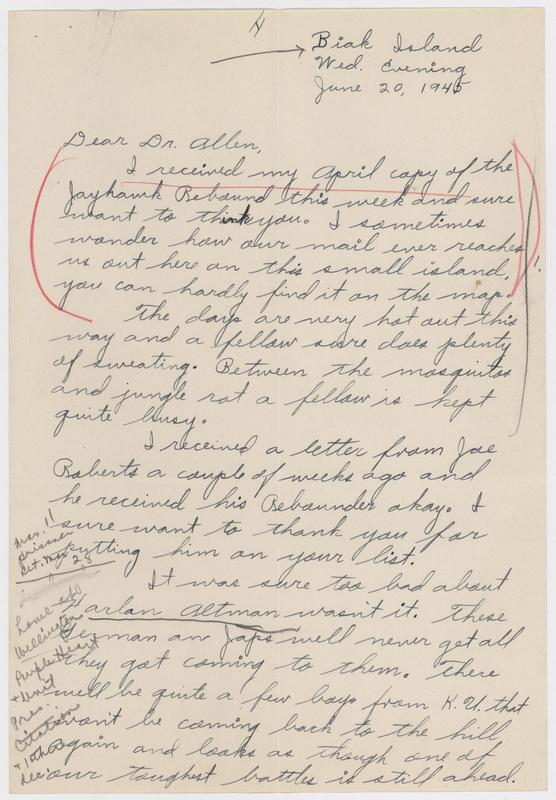 4
Biak Island
Wed. Evening
June 20, 1945
Dear Dr. Allen,
I received my April copy of the
Jayhawk Rebound this week and sure
want to think you. I sometimes
wonder how our mail ever reaches
us out here on this small island,
you can hardly find it on the map.
The days are very hot out this
way and a fellow sure does plenty
of sweating. Between the mosquitos
and jungle rot a fellow is kept
quite busy.
I received a letter from Joe
Roberts a couple of weeks ago and
he received his Rebounder okay. I
sure want to thank you for
putting him on your list.
It was sure too bad about
Harlan Altman wasn't it. These
German an Japs will never get all
they got coming to them. There
will be quite a few boys from K.U. that
won't be coming back to the hill
again and looks as though one of
our toughest battles is still ahead.
Mar. 11
prisoner
28
home
Wellington
Purple Heart
+ Unit
Pres.
Citation
+ other